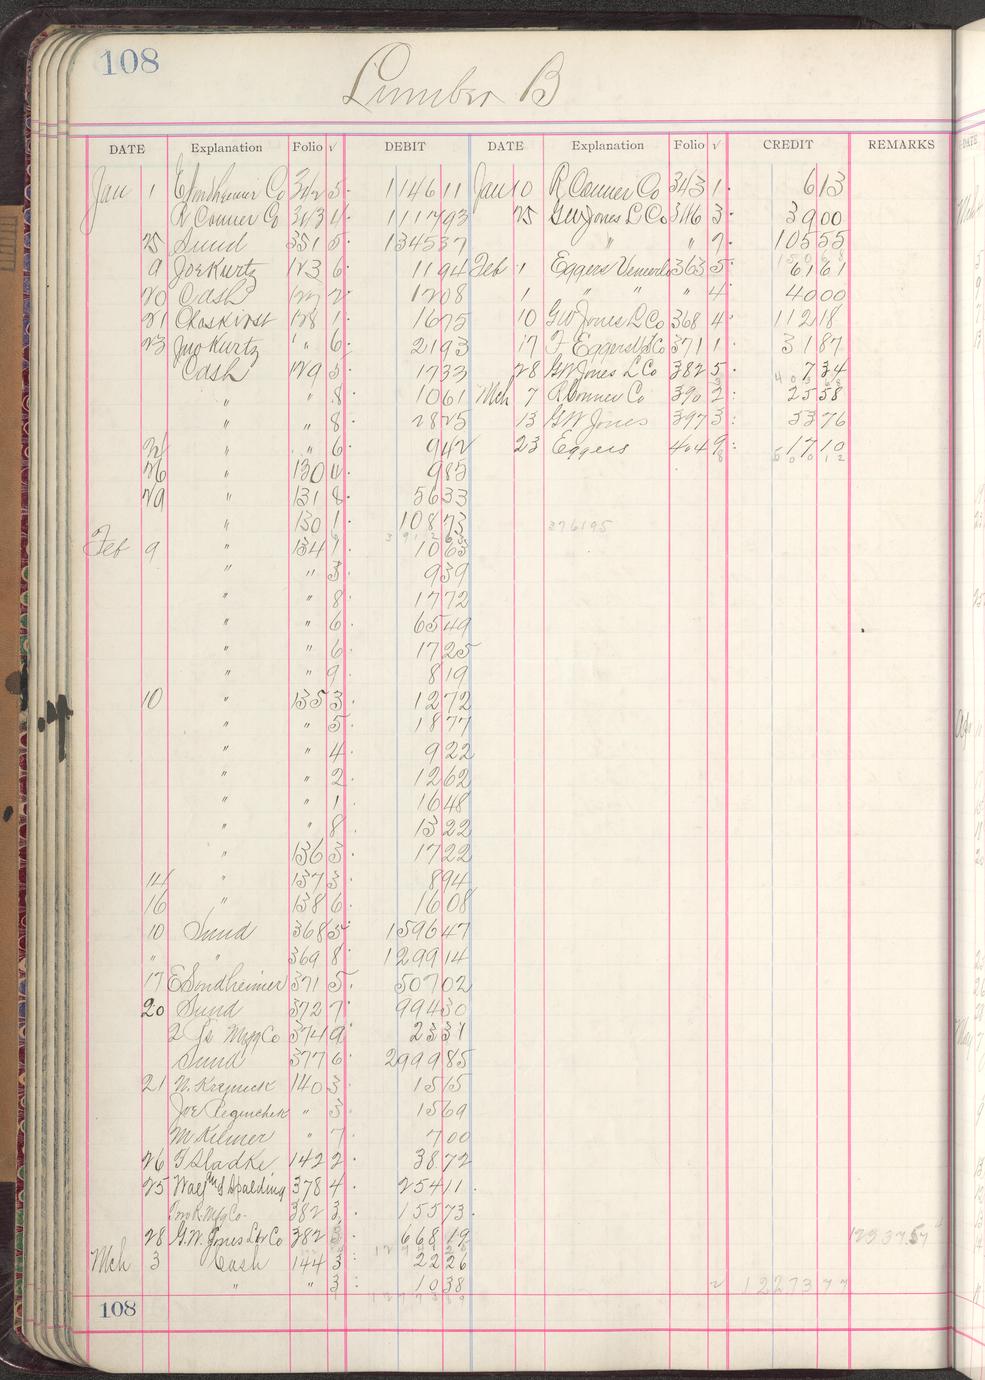 108
Lumber B
DATE Explanation Folio √ DEBIT DATE Explanation Folio √ CREDIT REMARKS
Jan 1 E Sondheimer Co 342 5 1146 11 Jan 10 R Conner Co 343 1 6 13
R Conner Co 343 4 1117 93 25 GW Jones L Co 346 3 39 00
25 Sund 351 5 1345 37 " " 7 105 55
9 Joe Kurtz 123 6 11 94 Feb 1 Eggers Veneer 363 5 61 61
20 Cash 127 2 12 08 1 " " " 4 40 00
21 Chas Kirst 128 1 16 75 10 GW Jones L Co 368 4 112 18
23 Jno Kurtz " 6 21 93 17 F Eggers 371 1 31 87
Cash 129 5 17 33 28 GW Jones L Co 382 5 7 34
" " 8 10 61 Mch 7 R Conner Co 390 2 25 58
" " 8 28 25 13 GW Jones 397 3 53 76
" " 6 9 42 23 Eggers 404 9 17 10
26 " 130 9 85
29 " 131 8 56 33
" 130 1 108 73 376195
Feb 9 " 134 1 10 63
" " 3 9 39
" " 8 17 72
" " 6 65 49
" " 6 17 25
" " 9 8 19
10 " 135 3 12 72
" " 5 18 77
" " 4 9 22
" " 2 12 62
" " 1 16 48
" " 8 13 22
" 136 3 17 22
14 " 137 3 8 94
16 " 138 6 16 08
10 Sund 368 5 1596 47
" " 369 8 1299 14
17 E Sondheimer 371 5 507 02
20 Sund 372 7 994 30
Mfg Co 374 9 23 31
Sund 377 6 2999 85
21 140 3 15 15
Joe " 3 15 69
M Kilmer " 7 7 00
26 F Sladke 142 2 38 72
25 Spalding 378 4 254 11
Mfg Co 382 3 155 73
28 G.W. Jones Lbr Co 382 3 668 19
Mch 3 Cash 144 3 22 26
" " 3 10 38 √ 12273 77
108